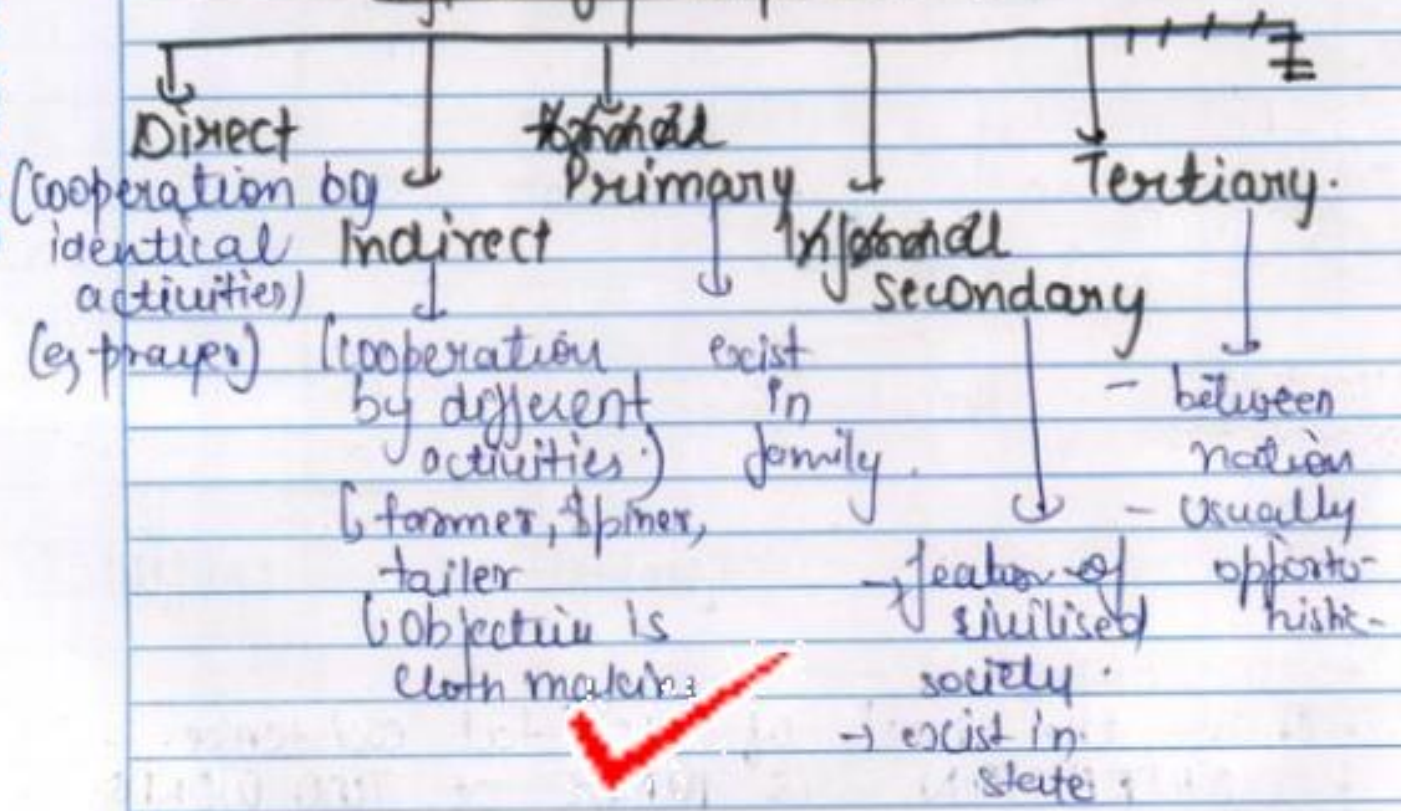 Direct
(cooperation by
identical
activities)
(eg prayer)
Indirect
(cooperation
by different
activities)
farmer, spiner,
tailer
objective is
cloth making
Primary
exist
in
family.
secondary
→ feature of
sivilised
society.
→ exist in
state.
Tertiary.
- between
nation
- usually
opportu-
nistic